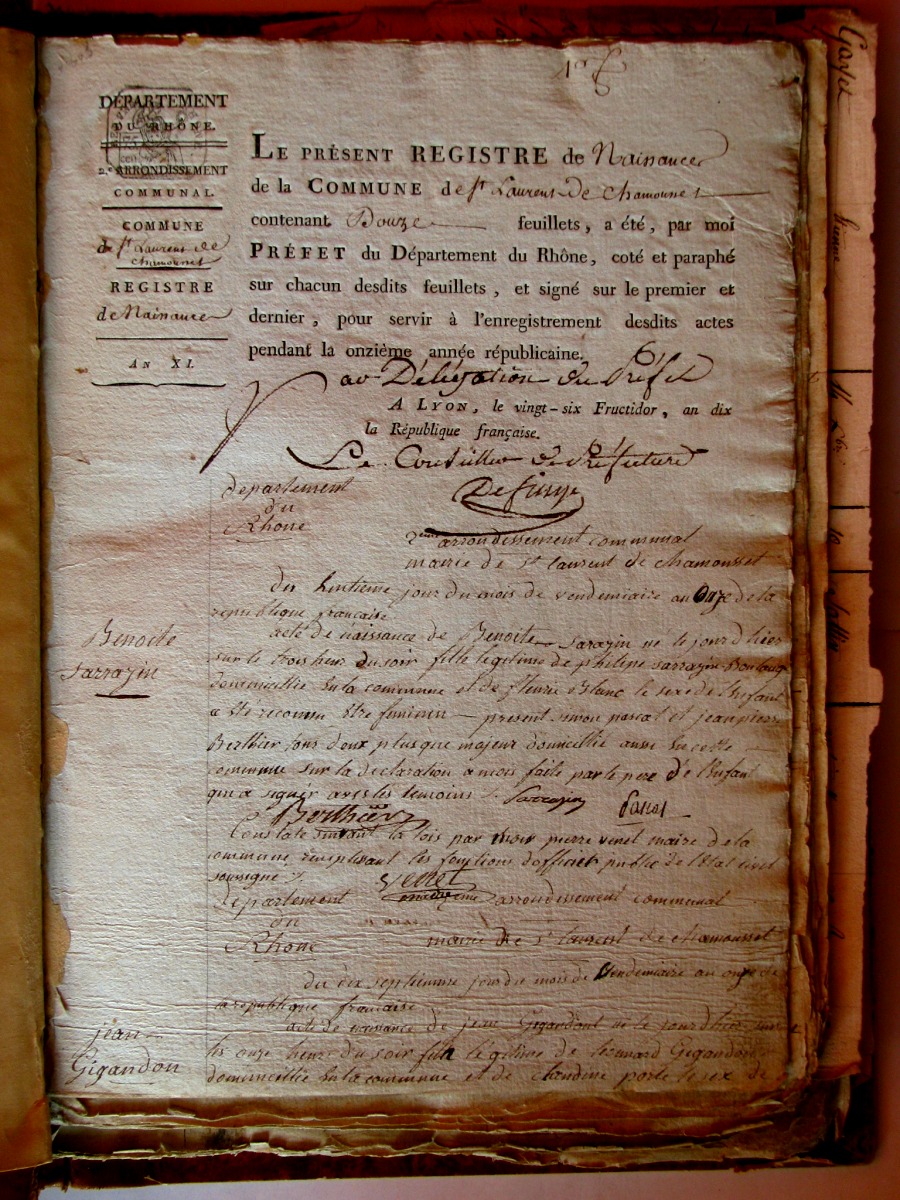 1er f
DÉPARTEMENT
DU RHÔNE.
2.e ARRONDISSEMENT
COMMUNAL.
COMMUNE
de st Laurent de
chamounet
REGISTRE
de Naissances
AN XI.
LE PRÉSENT REGISTRE de Naissances
de la COMMUNE de st Laurent de Chamounet
contenant Douze feuillets, a été, par moi
PRÉFET du Département du Rhône, coté et paraphé
sur chacun desdits feuillets, et signé sur le premier et
dernier, pour servir à l'enregistrement desdits actes
pendant la onzième année républicaine.
Par Délégation du Préfet
A LYON, le vingt-six Fructidor, an dix
la République française.
Le Conseiller de Préfecture
departement
du
Rhone
2eme arrondissement communal
mairie de st laurent de chamousset
du huitieme jour du mois de vendemiaire an onze de la
republique francaise
Benoite
Sarrazin
acte de naissance de Benoite Sarazin ne le jour d'hier
sur le trois heur du soir fille legitime de philipe sarrazin
domicillié en la commune et de fleurie Blanc le sexe de l'enfant
a ete reconnu être feminin present simon pascal et jean pierre
Berthier tous deux plus que majeur domicillié aussi en cette
commune sur la declaration a mois faite par le pere de l'enfant
qui a signér avec les temoins Sarrazin Pascal
Berthier
Constaté suivant la lois par moi pierre venet maire de la
commune remplissant les fonctions d'officier public de l'etat civil
soussigné
venet
Departement
du
Rhone
deuxieme arrondissement communal
mairie de st laurent de chamousset
du dix septieme jour du mois de Vendemiaire an onze de
la republique francaise
jean
Gigandon
acte de naissance de jean Gigandont ne le jour d'hier sur
les onze heur du soir fils légitime de Leonnard Gigandon
domicillié en la commune et de claudine porte le sex de
Gayet